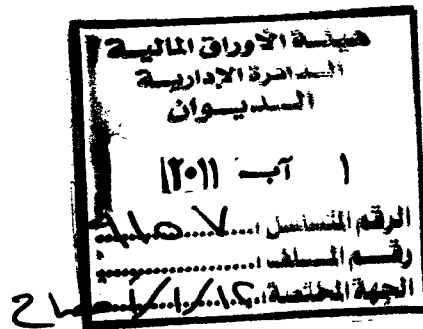 هيئة الأوراق المالية
الدائرة الإدارية
الديوان
١ آب ٢٠١١
الرقم المتسلسل :
رقم الملف :
الجهة المختصة :